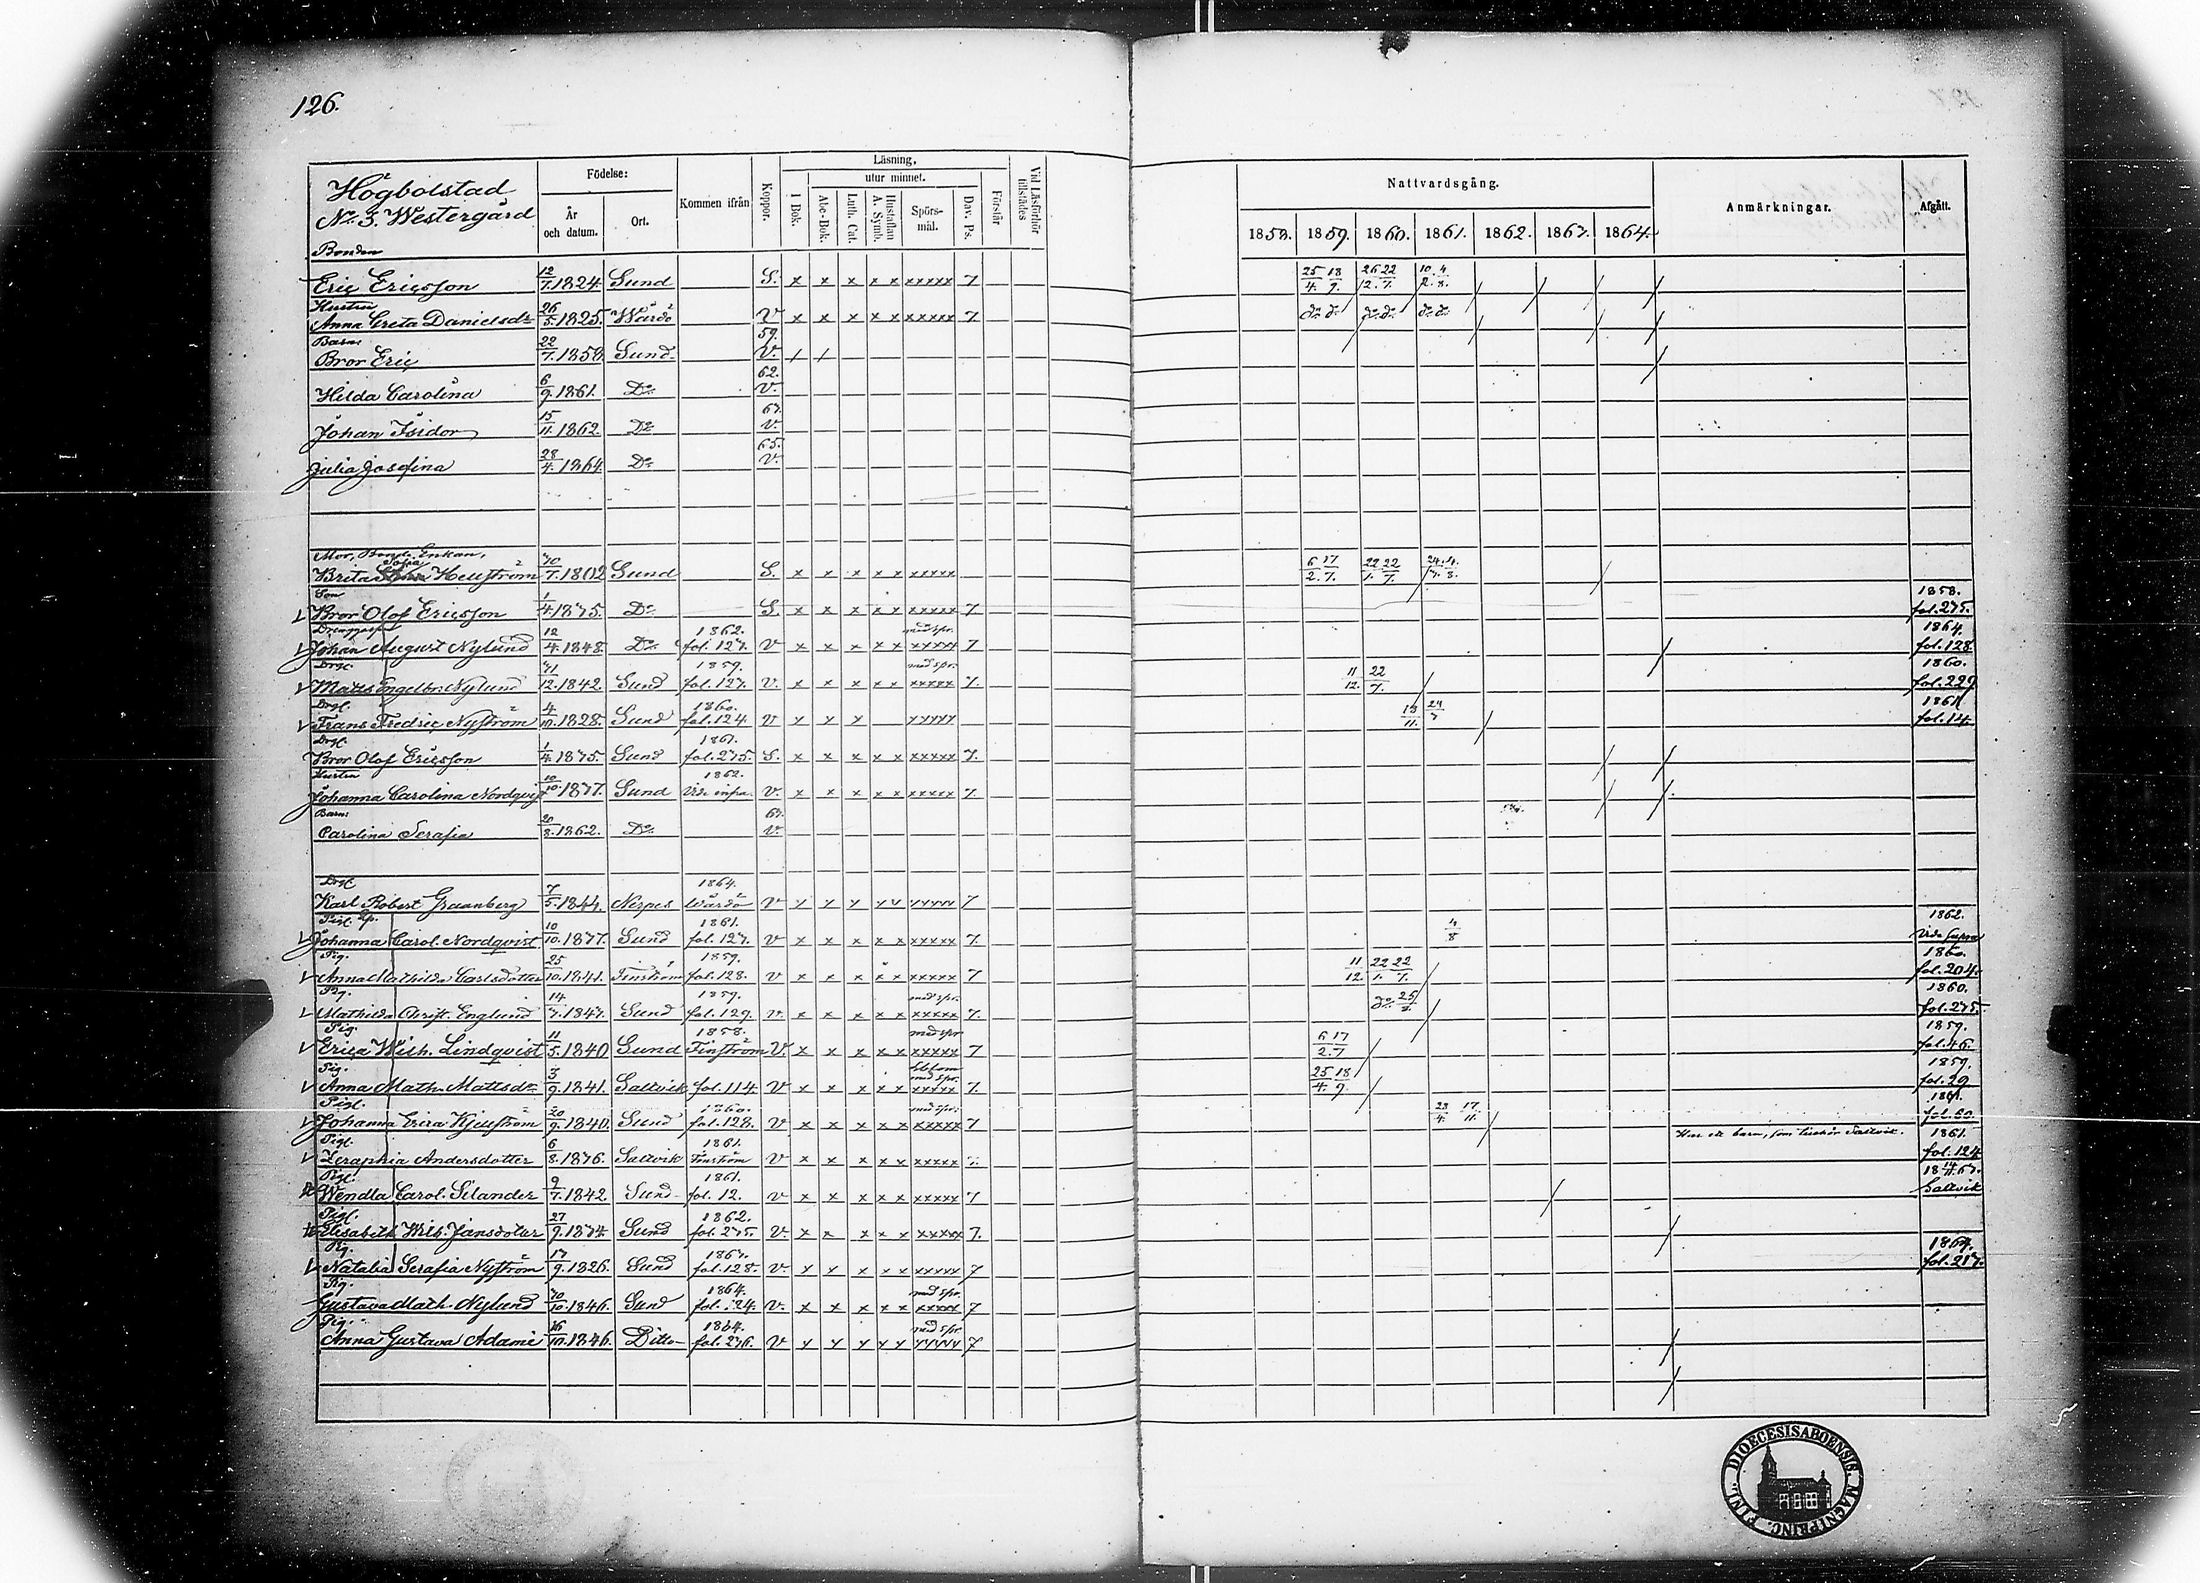 126.
Högbolstad
No. 3. Westergård
Födelse:
År och datum.
Ort.
Kommen ifrån
Koppor.
Läsning,
utur minnet.
I Bok.
Abc-Bok.
Luth. Cat.
Hustaflan A. Symb.
Spörs-mål.
Dav. Ps.
Förstår
Vid Läsförhör tillstädes
Nattvardsgång.
1858. 1859. 1860. 1861. 1862. 1863. 1864.
Anmärkningar.
Afgått.
Bonden
Eric Ericsson 12/7. 1824. Sund S. x x x x x xxxxx 7 25/4. 18/9. 26/2. 22/7. 10/2. 4/8.
Hustru
Anna Greta Danielsdr 26/5. 1825. Wårdö V x x x x x xxxxx 7. do do do do do do
Barn:
Bror Eric 22/7. 1858 Sund 59. V. / /
Hilda Carolina 6/9. 1861. Do 62. V.
Johan Isidor 15/11. 1862 Do 63. V.
Julia Josefina 28/4. 1864 Do 65. V.
Mor, Bonde Enkan,
Brita Sofia Heuström 1802 Sund S. x x x x x xxxxx 6/2. 17/7. 22/1. 22/7.
Son
Bror Olof Ericsson 1/4. 1835. Do S. x x x x x xxxxx 7 1858. fol. 275.
Johan August Nylund 12/4. 1848 Do 1862. fol. 127. V x x x x x med spr. xxxxx 7 1864. fol. 128.
Drgl.
Matts Engelbr. Nylund 31/12. 1842. Sund 1859. fol. 127. V. x x x x x med spr. xxxxx 7. 11/12. 22/7. 1860. fol. 229
Drgl.
Frans Fredric Nyström 4/10. 1828. Sund 1860. fol. 124. V x x x xxxxx 18/11. 24/7 1861 fol. 14.
Drgl.
Bror Olof Ericsson 1/4. 1835. Sund 1861. fol. 275. S. x x x x x xxxxx 7.
Hustru
Johanna Carolina Nordqvist 10/10. 1837. Sund 1862. Vide infra. V. x x x x x xxxxx 7.
Barn:
Carolina Serafia 20/8. 1862. Do 63. V.
Drgl
Karl Robert Graanberg 7/5. 1844. Nerpes 1864. Wårdö V x x x x x xxxxx 7
Pigl.
Johanna Carol. Nordqvist 10/10. 1837. Sund 1861. fol. 127. V x x x x x xxxxx 7. 4/8 1862. Vide supra
Pig.
Anna Mathilda Carlsdotter 25/10. 1841. Finström 1859. fol. 128. V x x x x x xxxxx 7 11/12. 22/1. 22/7. 1860. fol. 204.
Pig.
Mathilda Christ. Englund 14/7. 1843. Sund 1859. fol. 129. V. x x x x x med spr. xxxxx 7. do 1860. fol. 275.
Pig.
Erica Wilh. Lindqvist 11/5. 1840 Sund 1858. Finström V. x x x x x med spr xxxxx 7 6/2. 17/7 1859. fol. 46.
Pig.
Anna Math. Mattsdr 3/9. 1841. Saltvik fol. 114. V x x x x x med spr. xxxxx 7. 25/4. 18/9. 1859. fol. 29
Pigl.
Johanna Erica Kjeuström 20/9. 1840. Sund 1860. fol. 128. V x x x x x med spr. xxxxx 7 28/4. 17/11. 1861. fol. 60.
Pigl.
Zeraphia Andersdotter 6/8. 1836. Saltvik 1861. Finström V x x x x x xxxxx 7. Har ett barn, som tillhör Saltvik. 1861. fol. 124
Pigl.
Wendla Carol. Silander 9/7. 1842. Sund 1861. fol. 12. V x x x x x xxxxx 7 18 14/11. 63. Saltvik
Pigl.
Elisabeth Wilh. Jansdotter 27/9. 1834. Sund 1862. fol. 275. V. x x x x xxxxx 7.
Pig.
Natalia Serafia Nyström 17/9. 1826. Sund 1863. fol. 128. V. x x x x x xxxxx 7 1864. fol. 217.
Pig.
Gustava Math. Nylund 30/10. 1846. Sund 1864. fol. 124. V. x x x x x med spr. xxxxx 7
Pig.
Anna Gustava Adamé 16/10. 1846. Ditto 1864. fol. 276. V x x x x x med spr. xxxxx 7
DIOECESIS ABOENSIS. MAGNI PRINC. FINL.